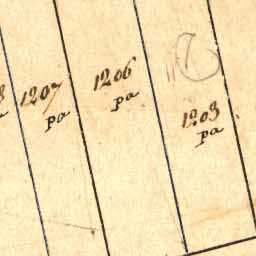 1207
pa
1206
pa
1203
pa